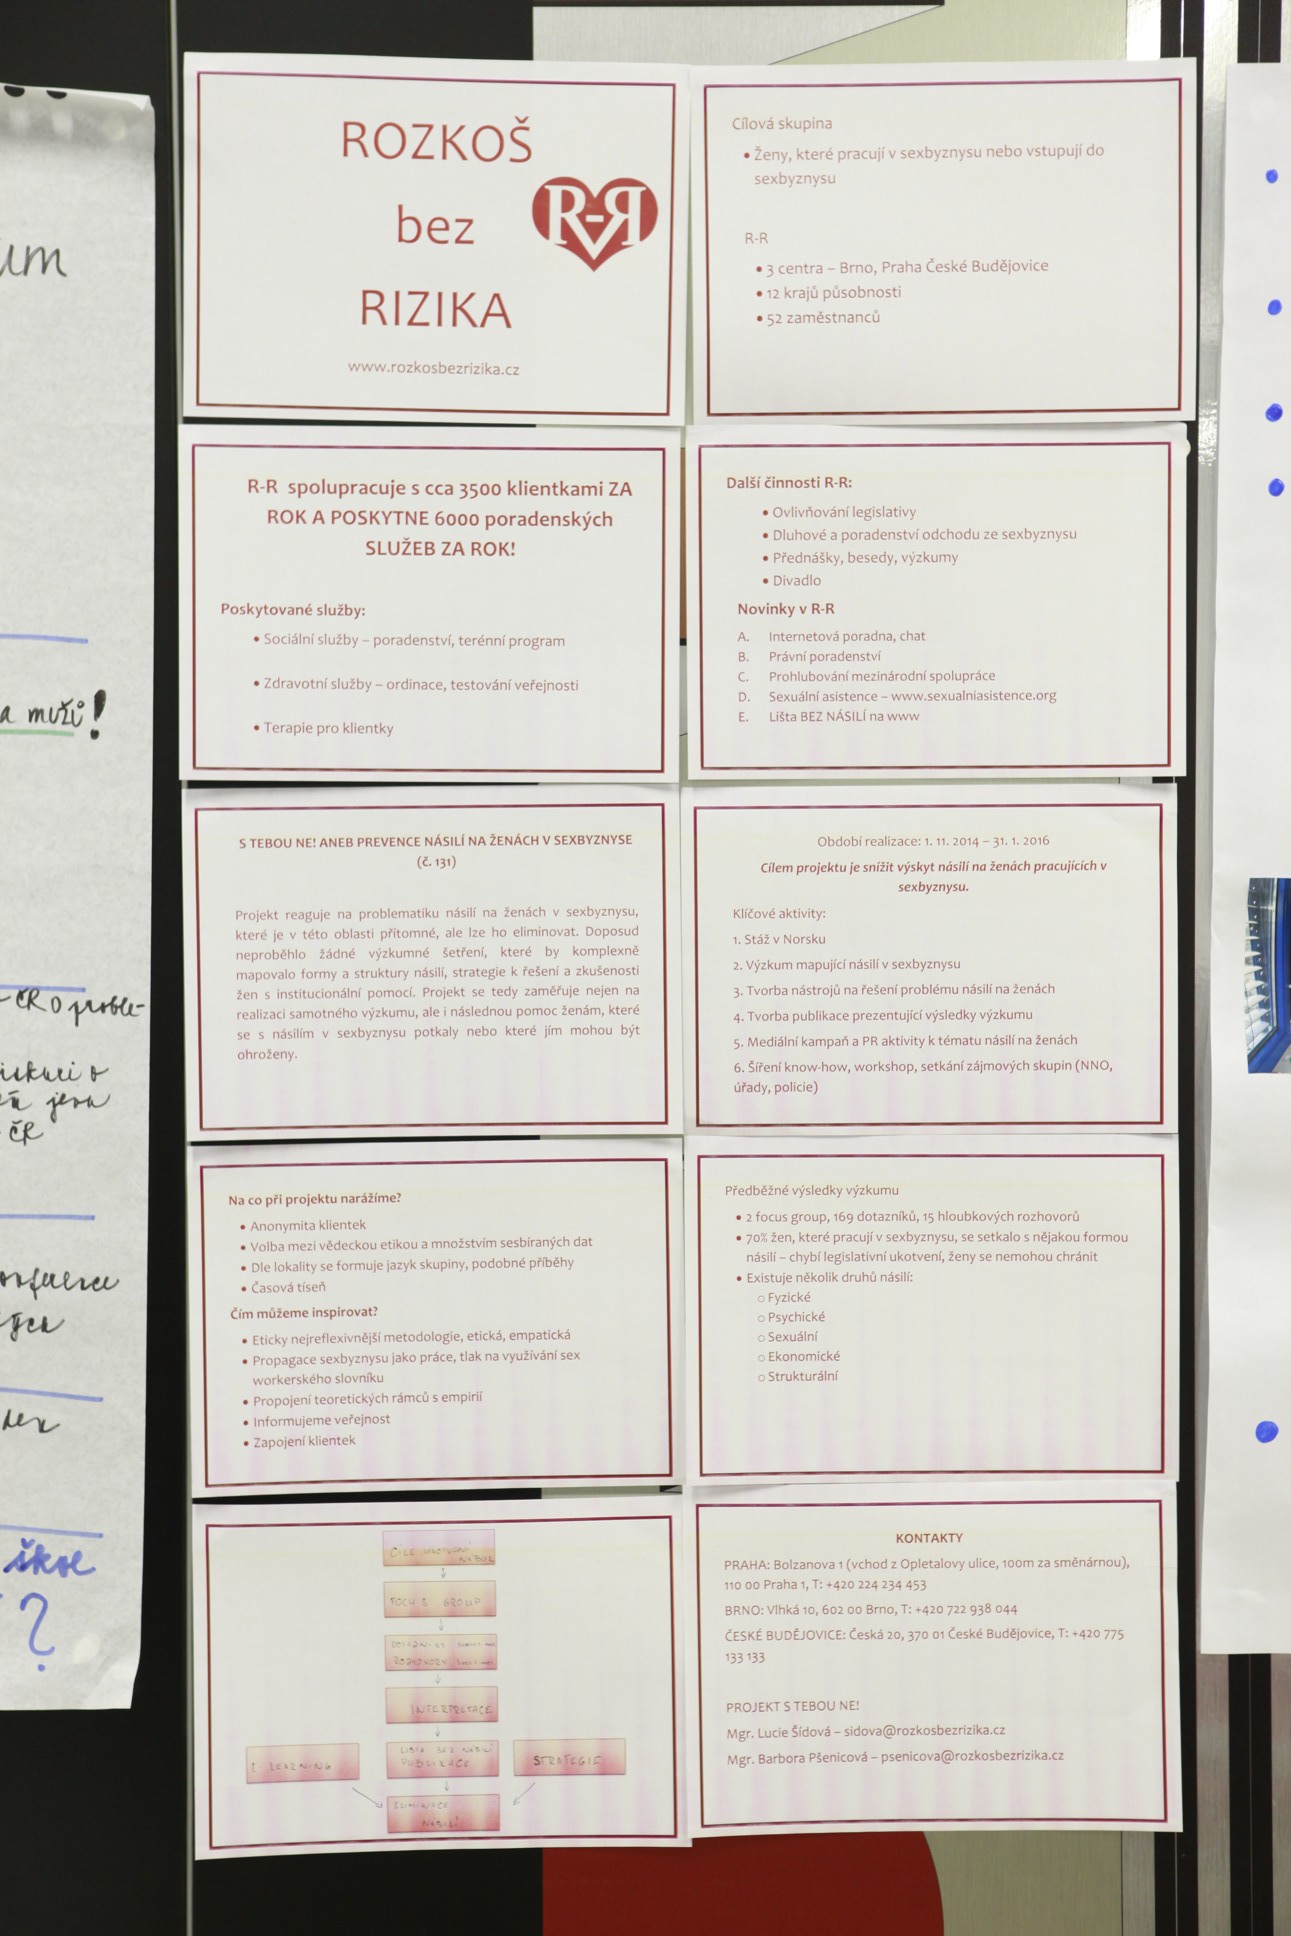 um
a mužů!
ČR o problé-
ČR
škol
?
ROZKOŠ
bez
RIZIKA
R-R
www.rozkosbezrizika.cz
Cílová skupina
• Ženy, které pracují v sexbyznysu nebo vstupují do
sexbyznysu
R-R
• 3 centra – Brno, Praha České Budějovice
• 12 krajů působnosti
• 52 zaměstnanců
R-R spolupracuje s cca 3500 klientkami ZA
ROK A POSKYTNE 6000 poradenských
SLUŽEB ZA ROK!
Poskytované služby:
• Sociální služby – poradenství, terénní program
• Zdravotní služby – ordinace, testování veřejnosti
• Terapie pro klientky
Další činnosti R-R:
• Ovlivňování legislativy
• Dluhové a poradenství odchodu ze sexbyznysu
• Přednášky, besedy, výzkumy
• Divadlo
Novinky v R-R
A. Internetová poradna, chat
B. Právní poradenství
C. Prohlubování mezinárodní spolupráce
D. Sexuální asistence – www.sexualniasistence.org
E. Lišta BEZ NÁSILÍ na www
S TEBOU NE! ANEB PREVENCE NÁSILÍ NA ŽENÁCH V SEXBYZNYSE
(č. 131)
Projekt reaguje na problematiku násilí na ženách v sexbyznysu,
které je v této oblasti přítomné, ale lze ho eliminovat. Doposud
neproběhlo žádné výzkumné šetření, které by komplexně
mapovalo formy a struktury násilí, strategie k řešení a zkušenosti
žen s institucionální pomocí. Projekt se tedy zaměřuje nejen na
realizaci samotného výzkumu, ale i následnou pomoc ženám, které
se s násilím v sexbyznysu potkaly nebo které jím mohou být
ohroženy.
Období realizace: 1. 11. 2014 – 31. 1. 2016
Cílem projektu je snížit výskyt násilí na ženách pracujících v
sexbyznysu.
Klíčové aktivity:
1. Stáž v Norsku
2. Výzkum mapující násilí v sexbyznysu
3. Tvorba nástrojů na řešení problému násilí na ženách
4. Tvorba publikace prezentující výsledky výzkumu
5. Mediální kampaň a PR aktivity k tématu násilí na ženách
6. Šíření know-how, workshop, setkání zájmových skupin (NNO,
úřady, policie)
Na co při projektu narážíme?
• Anonymita klientek
• Volba mezi vědeckou etikou a množstvím sesbíraných dat
• Dle lokality se formuje jazyk skupiny, podobné příběhy
• Časová tíseň
Čím můžeme inspirovat?
• Eticky nejreflexivnější metodologie, etická, empatická
• Propagace sexbyznysu jako práce, tlak na využívání sex
workerského slovníku
• Propojení teoretických rámců s empirií
• Informujeme veřejnost
• Zapojení klientek
Předběžné výsledky výzkumu
• 2 focus group, 169 dotazníků, 15 hloubkových rozhovorů
• 70% žen, které pracují v sexbyznysu, se setkalo s nějakou formou
násilí – chybí legislativní ukotvení, ženy se nemohou chránit
• Existuje několik druhů násilí:
○ Fyzické
○ Psychické
○ Sexuální
○ Ekonomické
○ Strukturální
FOCUS GROUP
ROZHOVORY
INTERPRETACE
LIŠTA BEZ NÁSILÍ
PUBLIKACE
E-LEARNING
STRATEGIE
ELIMINACE
NÁSILÍ
KONTAKTY
PRAHA: Bolzanova 1 (vchod z Opletalovy ulice, 100m za směnárnou),
110 00 Praha 1, T: +420 224 234 453
BRNO: Vlhká 10, 602 00 Brno, T: +420 722 938 044
ČESKÉ BUDĚJOVICE: Česká 20, 370 01 České Budějovice, T: +420 775
133 133
PROJEKT S TEBOU NE!
Mgr. Lucie Šídová – sidova@rozkosbezrizika.cz
Mgr. Barbora Pšenicová – psenicova@rozkosbezrizika.cz